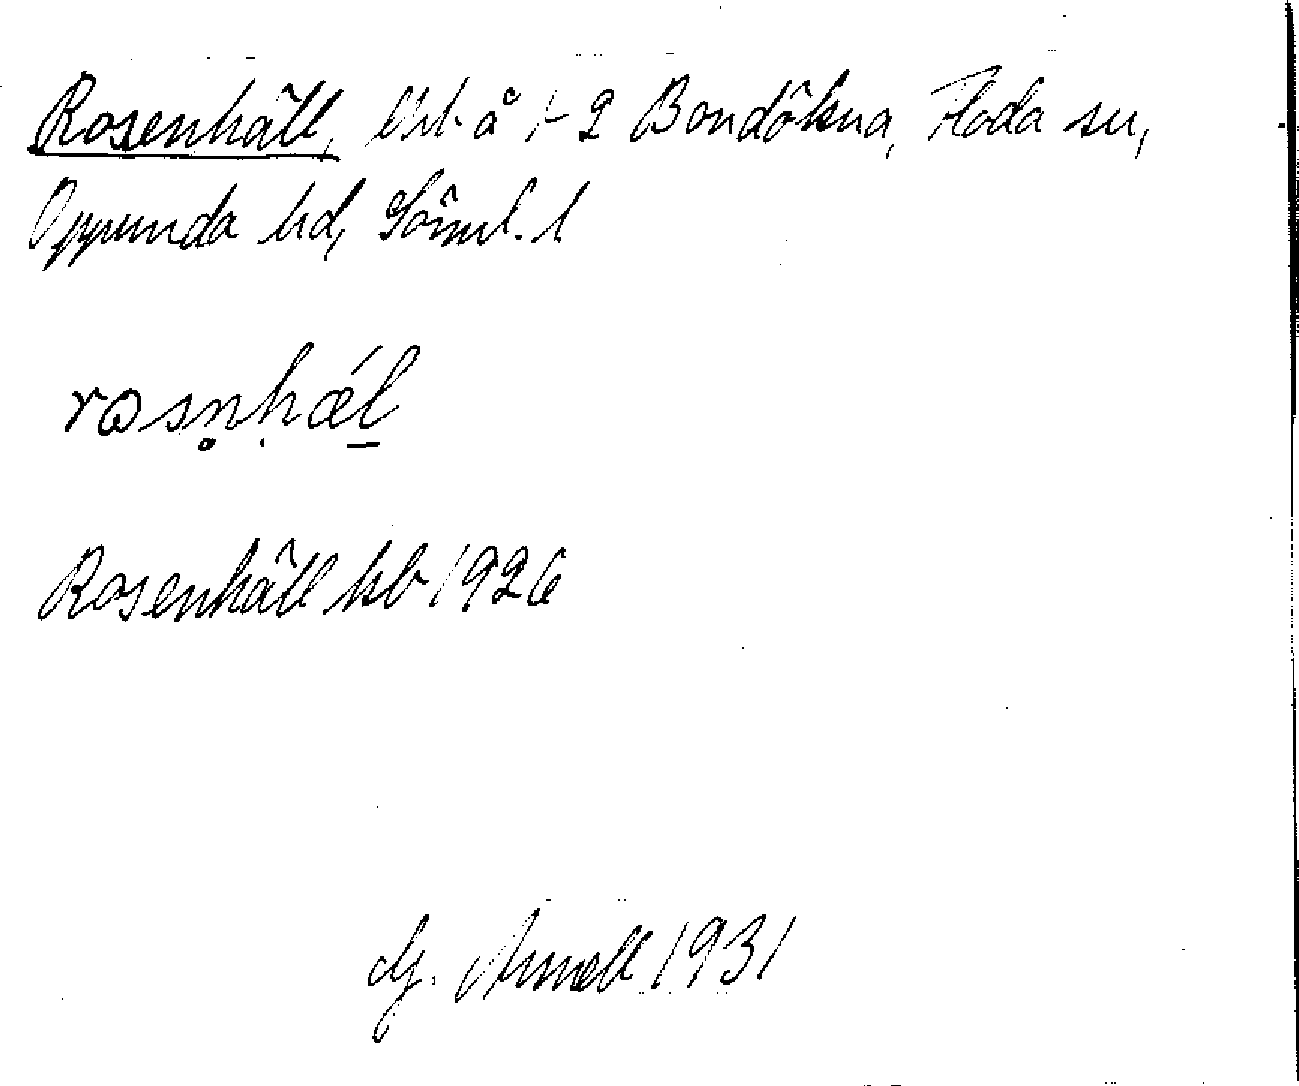 Rosenhäll, lht å 1-2 Bondökna, Floda sn,
Oppunda hd, Söml. l
rosn̥hǽl
Rosenhäll kb 1926
G. Arnell 1931